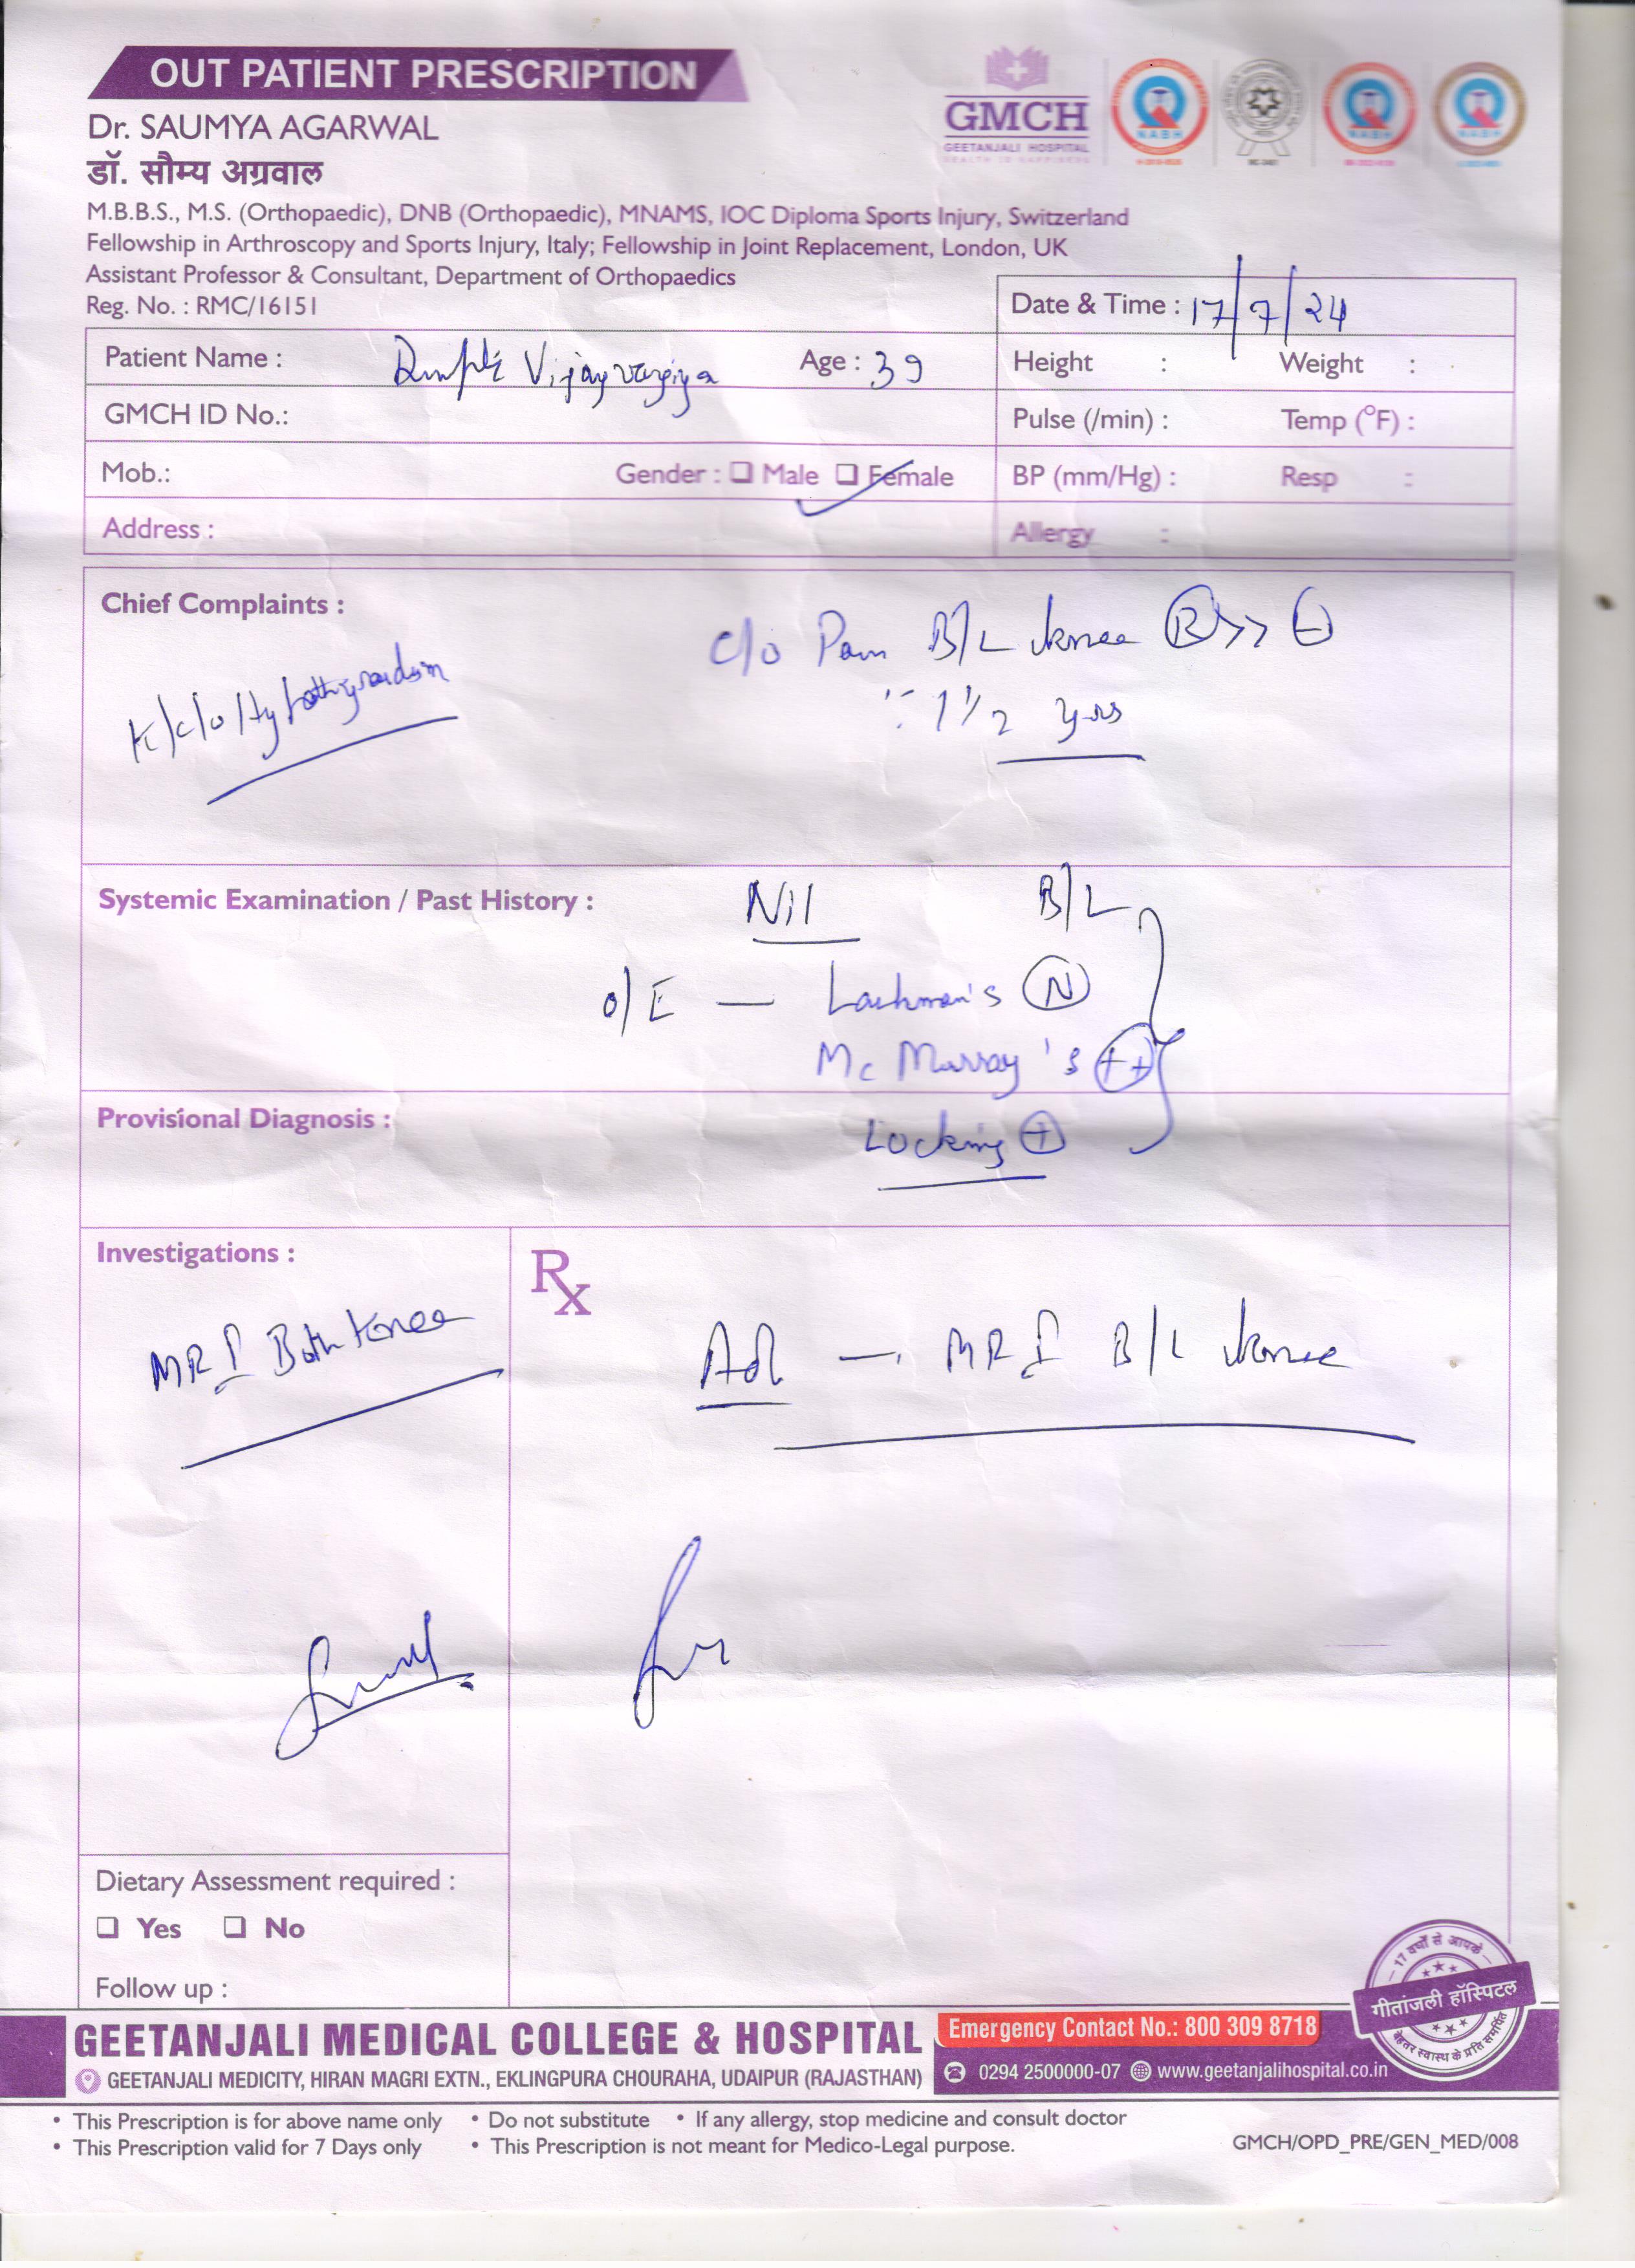 OUT PATIENT PRESCRIPTION
GMCH
GEETANJALI HOSPITAL
NABH
NABH
NABH
Dr. SAUMYA AGARWAL
डॉ. सौम्य अग्रवाल
M.B.B.S., M.S. (Orthopaedic), DNB (Orthopaedic), MNAMS, IOC Diploma Sports Injury, Switzerland
Fellowship in Arthroscopy and Sports Injury, Italy; Fellowship in Joint Replacement, London, UK
Assistant Professor & Consultant, Department of Orthopaedics
Reg. No. : RMC/16151
Date & Time : 17/7/24
Patient Name : Vijayvargiya Age : 39 Height : Weight :
GMCH ID No.: Pulse (/min) : Temp (°F) :
Mob.: Gender : Male Female BP (mm/Hg) : Resp :
Address : Allergy :
Chief Complaints :
c/o Pain B/L knee R >> L
1 1/2 yrs
K/c/o
Systemic Examination / Past History : Nil B/L
O/E — Lachman's N
Mc Murray's ++
Provisional Diagnosis :
Locking +
Investigations :
MRI Both Knee
Rx
Adv — MRI B/L knee
Dietary Assessment required :
Yes No
Follow up :
17 वर्षों से आपके
गीतांजली हॉस्पिटल
बेहतर स्वास्थ के प्रति समर्पित
GEETANJALI MEDICAL COLLEGE & HOSPITAL
Emergency Contact No.: 800 309 8718
GEETANJALI MEDICITY, HIRAN MAGRI EXTN., EKLINGPURA CHOURAHA, UDAIPUR (RAJASTHAN)
0294 2500000-07 www.geetanjalihospital.co.in
• This Prescription is for above name only • Do not substitute • If any allergy, stop medicine and consult doctor
• This Prescription valid for 7 Days only • This Prescription is not meant for Medico-Legal purpose.
GMCH/OPD_PRE/GEN_MED/008